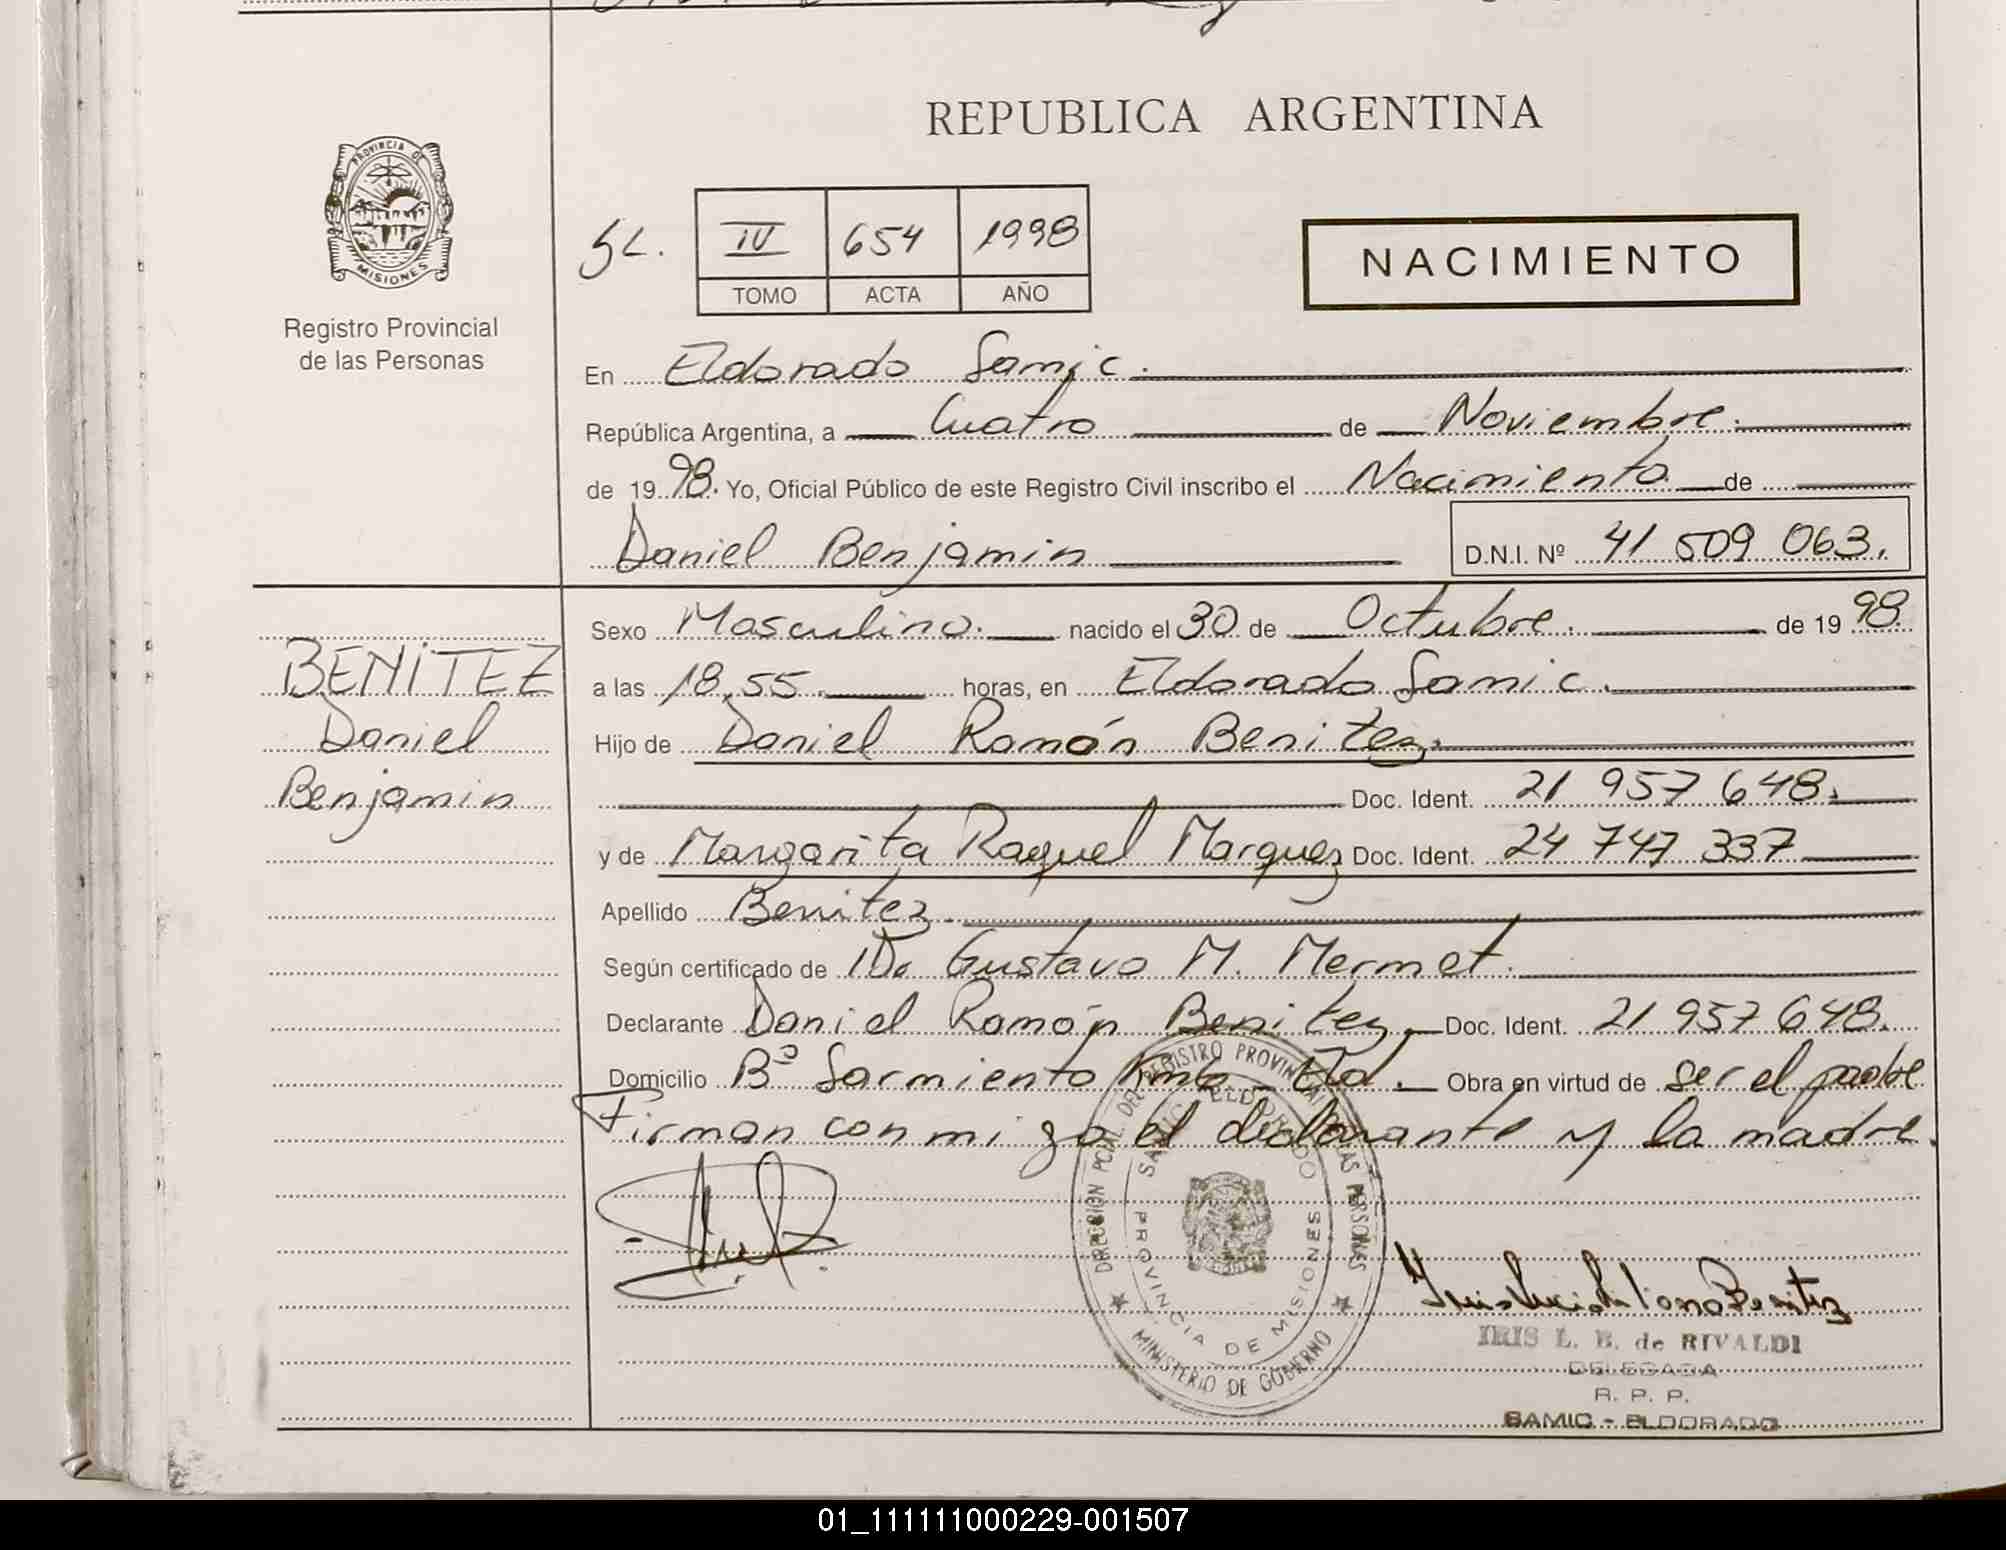 REPUBLICA ARGENTINA
PROVINCIA DE
MISIONES
Registro Provincial
de las Personas
SL.
IV 654 1998
TOMO ACTA AÑO
NACIMIENTO
En Eldorado Samic.
República Argentina, a Cuatro de Noviembre.
de 1998. Yo, Oficial Público de este Registro Civil inscribo el Nacimiento de
Daniel Benjamin D.N.I. Nº 41 509 063.
BENITEZ
Daniel
Benjamin
Sexo Masculino. nacido el 30 de Octubre. de 1998.
a las 18,55. horas, en Eldorado Samic.
Hijo de Daniel Ramón Benitez.
Doc. Ident. 21 957 648.
y de Margarita Raquel Marquez Doc. Ident. 24 747 337
Apellido Benitez.
Según certificado de Dr. Gustavo M. Mermet.
Declarante Daniel Ramón Benitez. Doc. Ident. 21 957 648.
Domicilio Bº Sarmiento Km6 - Eld. Obra en virtud de ser el padre
Firman con mi go el declarante y la madre.
DIRECCION PCIAL. DEL REGISTRO PROVINCIAL DE LAS PERSONAS
SAMIC ELDORADO
PROVINCIA DE MISIONES
MINISTERIO DE GOBIERNO
IRIS L. B. de RIVALDI
DELEGADA
R. P. P.
SAMIC - ELDORADO
01_111111000229-001507